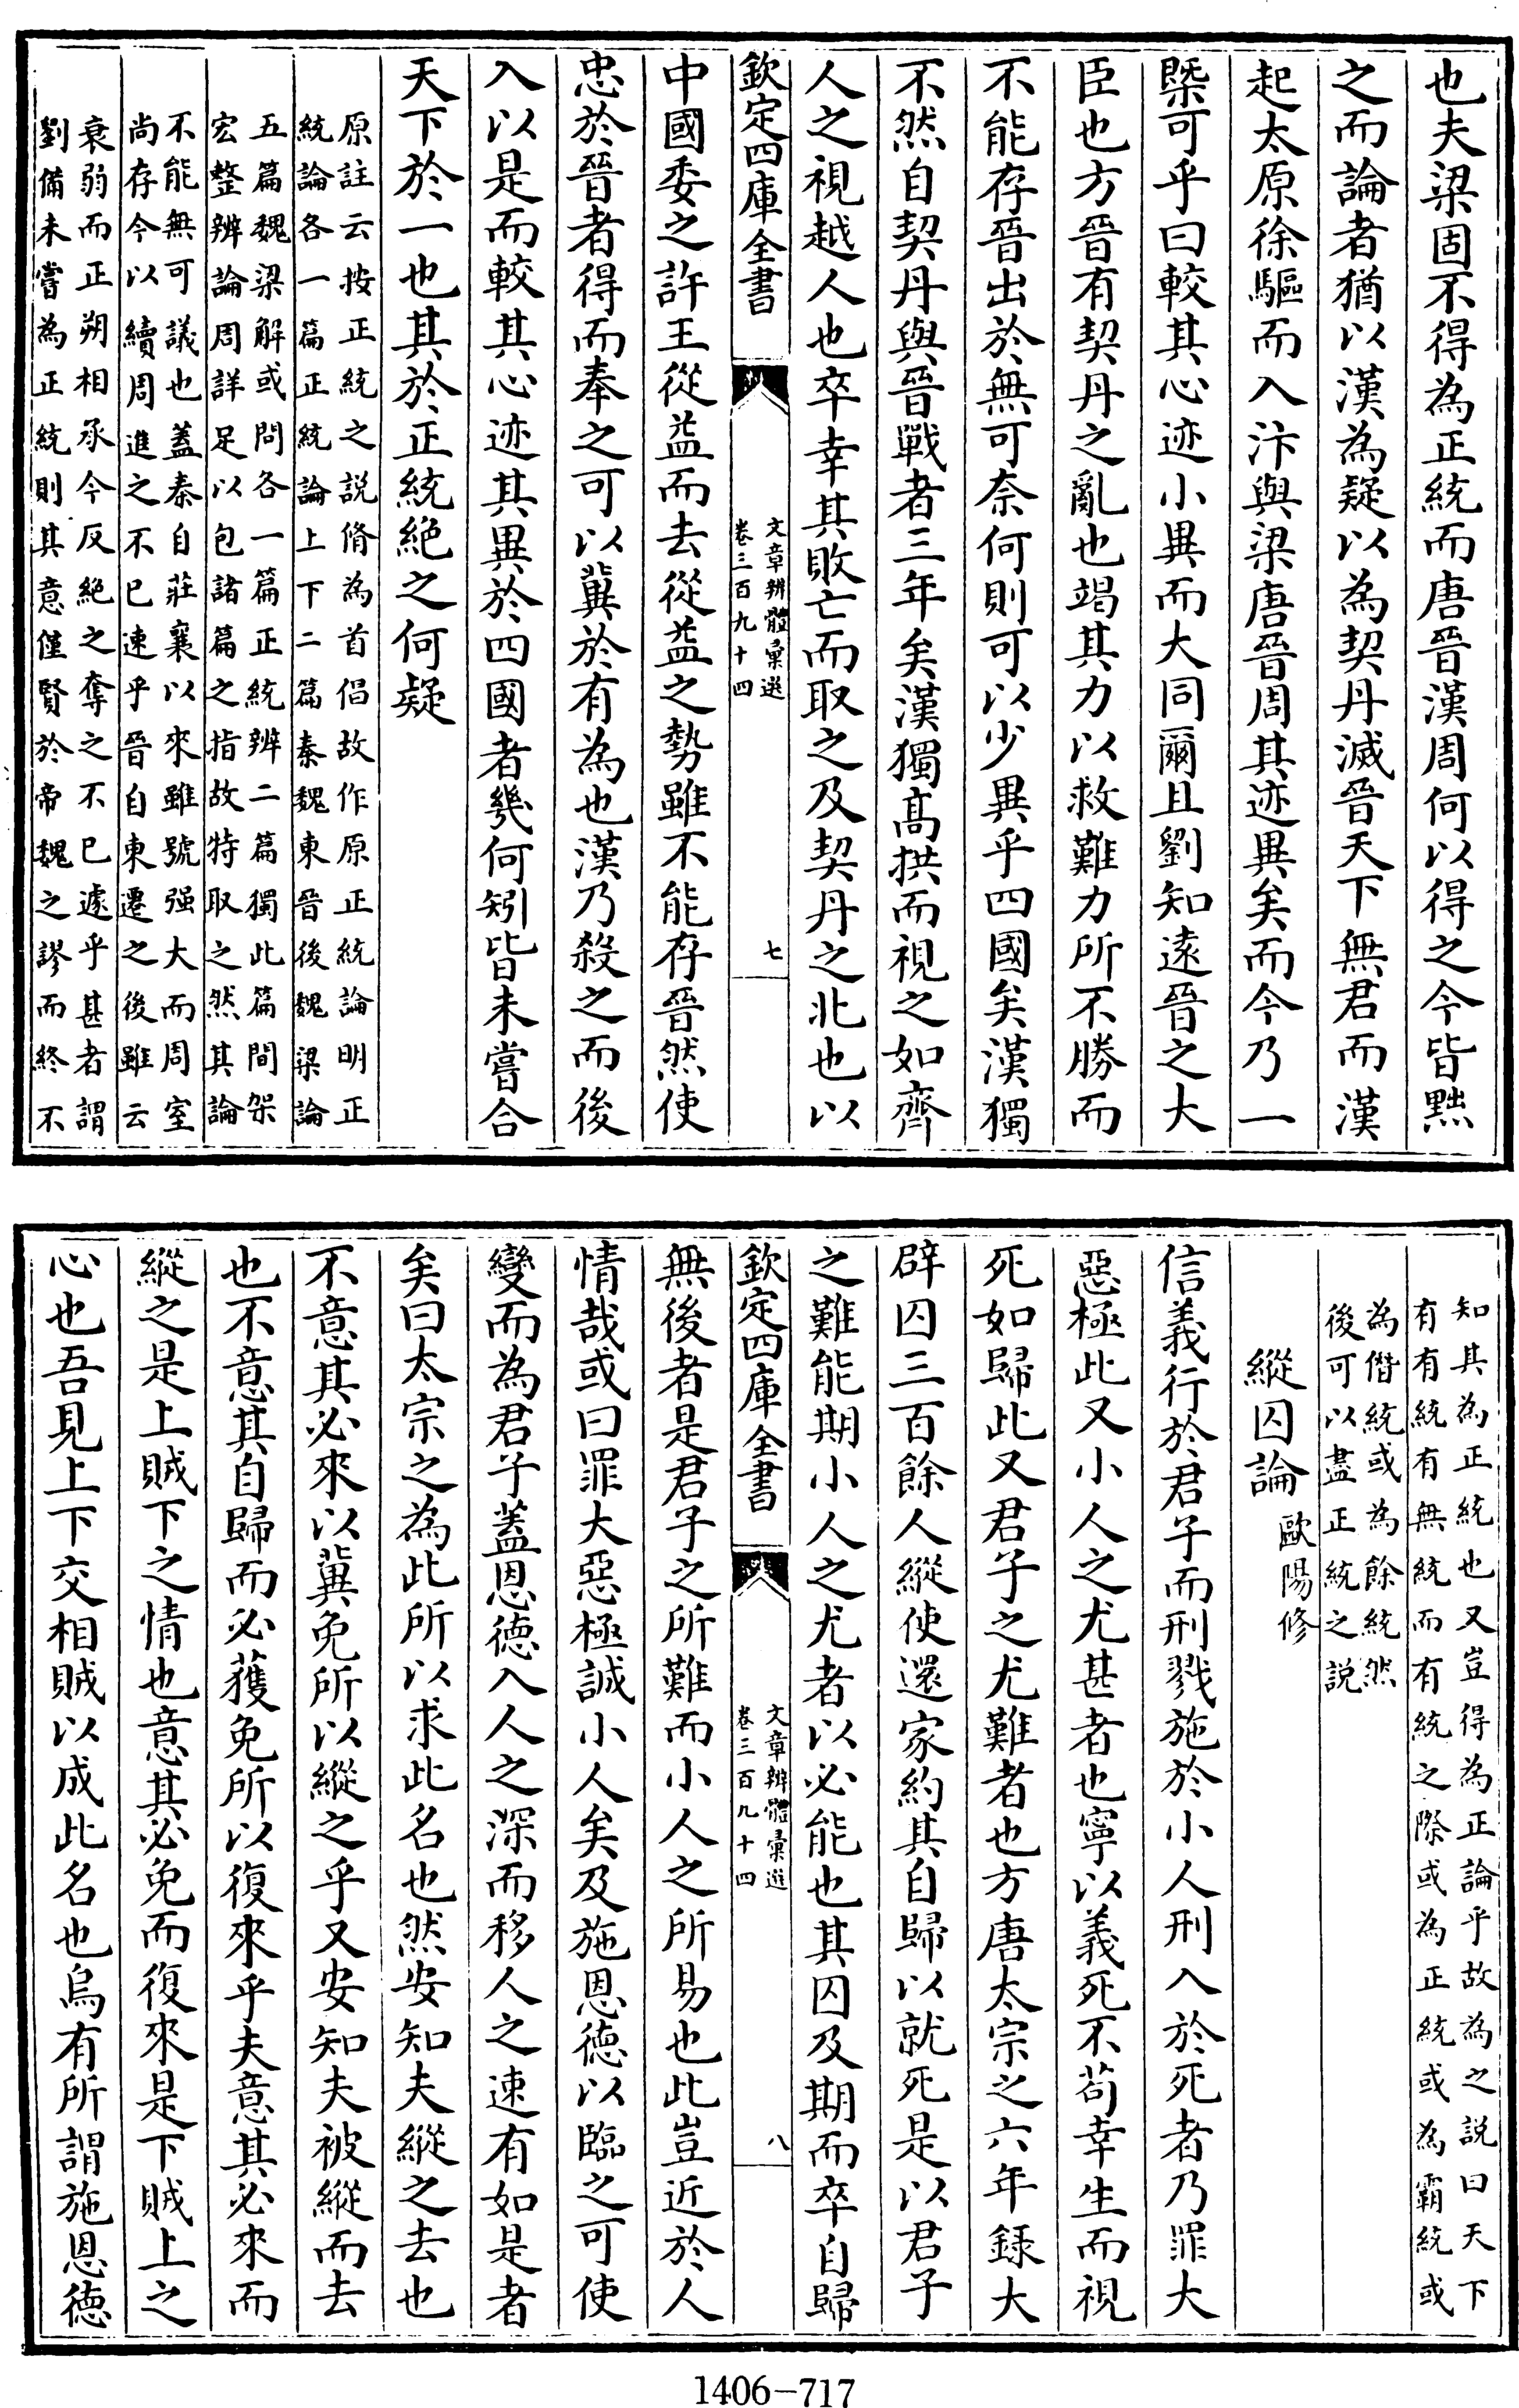 也夫梁固不得為正統而唐晉漢周何以得之今皆黜
之而論者猶以漢為疑以為契丹滅晉天下無君而漢
起太原徐驅而入汴與梁唐晉周其迹異矣而今乃一
槩可乎曰較其心迹小異而大同爾且劉知遠晉之大
臣也方晉有契丹之亂也竭其力以救難力所不勝而
不能存晉出於無可奈何則可以少異乎四國矣漢獨
不然自契丹與晉戰者三年矣漢獨髙拱而視之如齊
人之視越人也卒幸其敗亡而取之及契丹之北也以
欽定四庫全書
文章辨體彚選
卷三百九十四
七
中國委之許王從益而去從益之勢雖不能存晉然使
忠於晉者得而奉之可以冀於有為也漢乃殺之而後
入以是而較其心迹其異於四國者幾何矧皆未嘗合
天下於一也其於正統絶之何疑
原註云按正統之説脩為首倡故作原正統論明正
統論各一篇正統論上下二篇秦魏東晉後魏梁論
五篇魏梁解或問各一篇正統辨二篇獨此篇間架
宏整辨論周詳足以包諸篇之指故特取之然其論
不能無可議也蓋秦自莊襄以來雖號强大而周室
尚存今以續周進之不已速乎晉自東遷之後雖云
衰弱而正朔相承今反絶之奪之不已遽乎甚者謂
劉備未嘗為正統則其意僅賢於帝魏之謬而終不
知其為正統也又豈得為正論乎故為之説曰天下
有有統有無統而有統之際或為正統或為霸統或
為僭統或為餘統然
後可以盡正統之説
縱囚論
歐陽修
信義行於君子而刑戮施於小人刑入於死者乃罪大
惡極此又小人之尤甚者也寧以義死不苟幸生而視
死如歸此又君子之尤難者也方唐太宗之六年録大
辟囚三百餘人縱使還家約其自歸以就死是以君子
之難能期小人之尤者以必能也其囚及期而卒自歸
欽定四庫全書
文章辨體彚選
卷三百九十四
八
無後者是君子之所難而小人之所易也此豈近於人
情哉或曰罪大惡極誠小人矣及施恩德以臨之可使
變而為君子蓋恩德入人之深而移人之速有如是者
矣曰太宗之為此所以求此名也然安知夫縱之去也
不意其必來以冀免所以縱之乎又安知夫被縱而去
也不意其自歸而必獲免所以復來乎夫意其必來而
縱之是上賊下之情也意其必免而復來是下賊上之
心也吾見上下交相賊以成此名也烏有所謂施恩德
1406-717